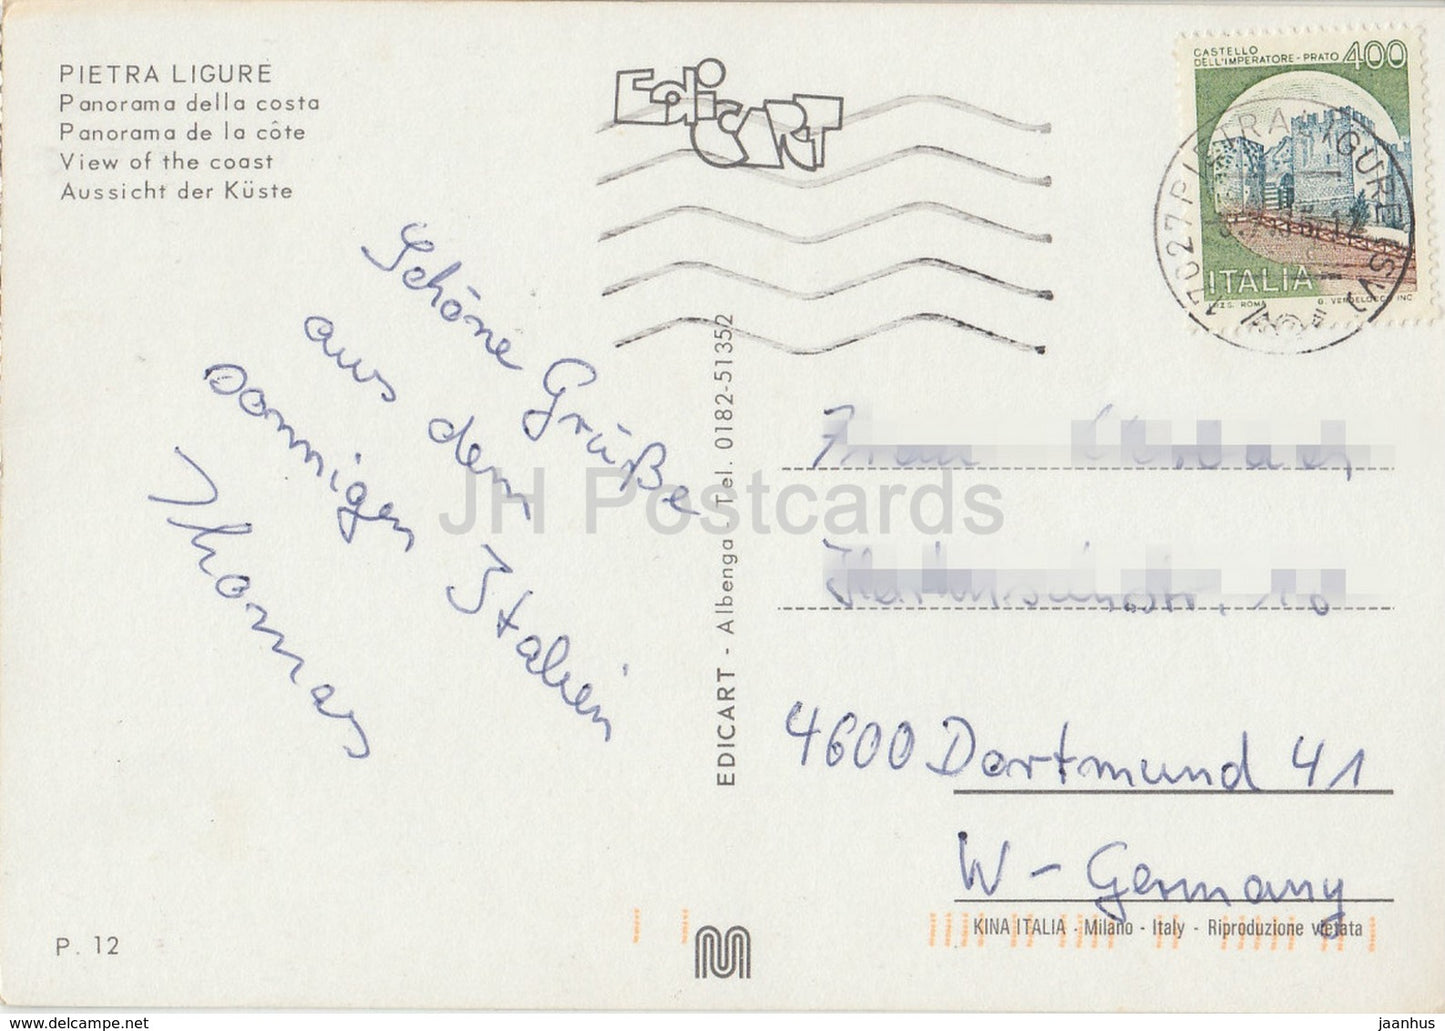 PIETRA LIGURE
Panorama della costa
Panorama de la côte
View of the coast
Aussicht der Küste
EdiCART
CASTELLO
DELL'IMPERATORE - PRATO 400
ITALIA
I.P.Z.S. ROMA
17027 PIETRA LIGURE (SV)
Schöne Grüße
aus dem
sonnigen Italien
Thomas
EDICART - Albenga - Tel. 0182-51352
JH Postcards
Frau
4600 Dortmund 41
W - Germany
KINA ITALIA - Milano - Italy - Riproduzione vietata
P. 12
www.delcampe.net
jaanhus